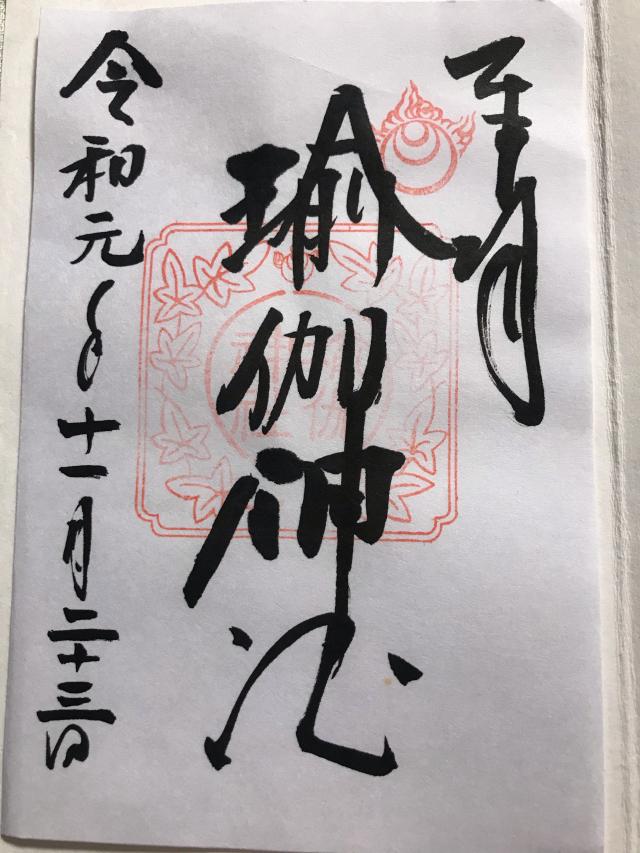 奉拝
瑜伽神社
令和元年十一月二十三日